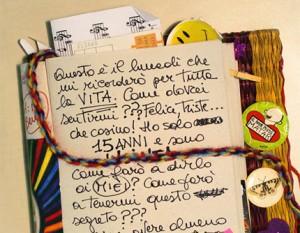 Questo è il lunedì che
mi ricorderò per tutta
la VITA. Come dovrei
sentirmi??? Felice, triste...
che casino! Ho solo
15 ANNI e sono
Come farò a dirlo
ai (MIEI)? Come farò
a tenermi questo
segreto???
almeno